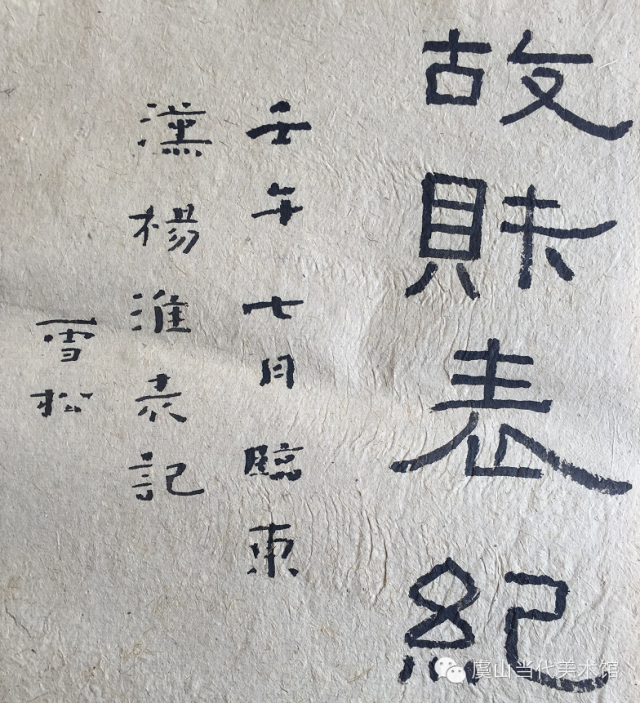 故財表紀
壬午七月臨東
漢楊淮表記
雪松
虞山当代美术馆